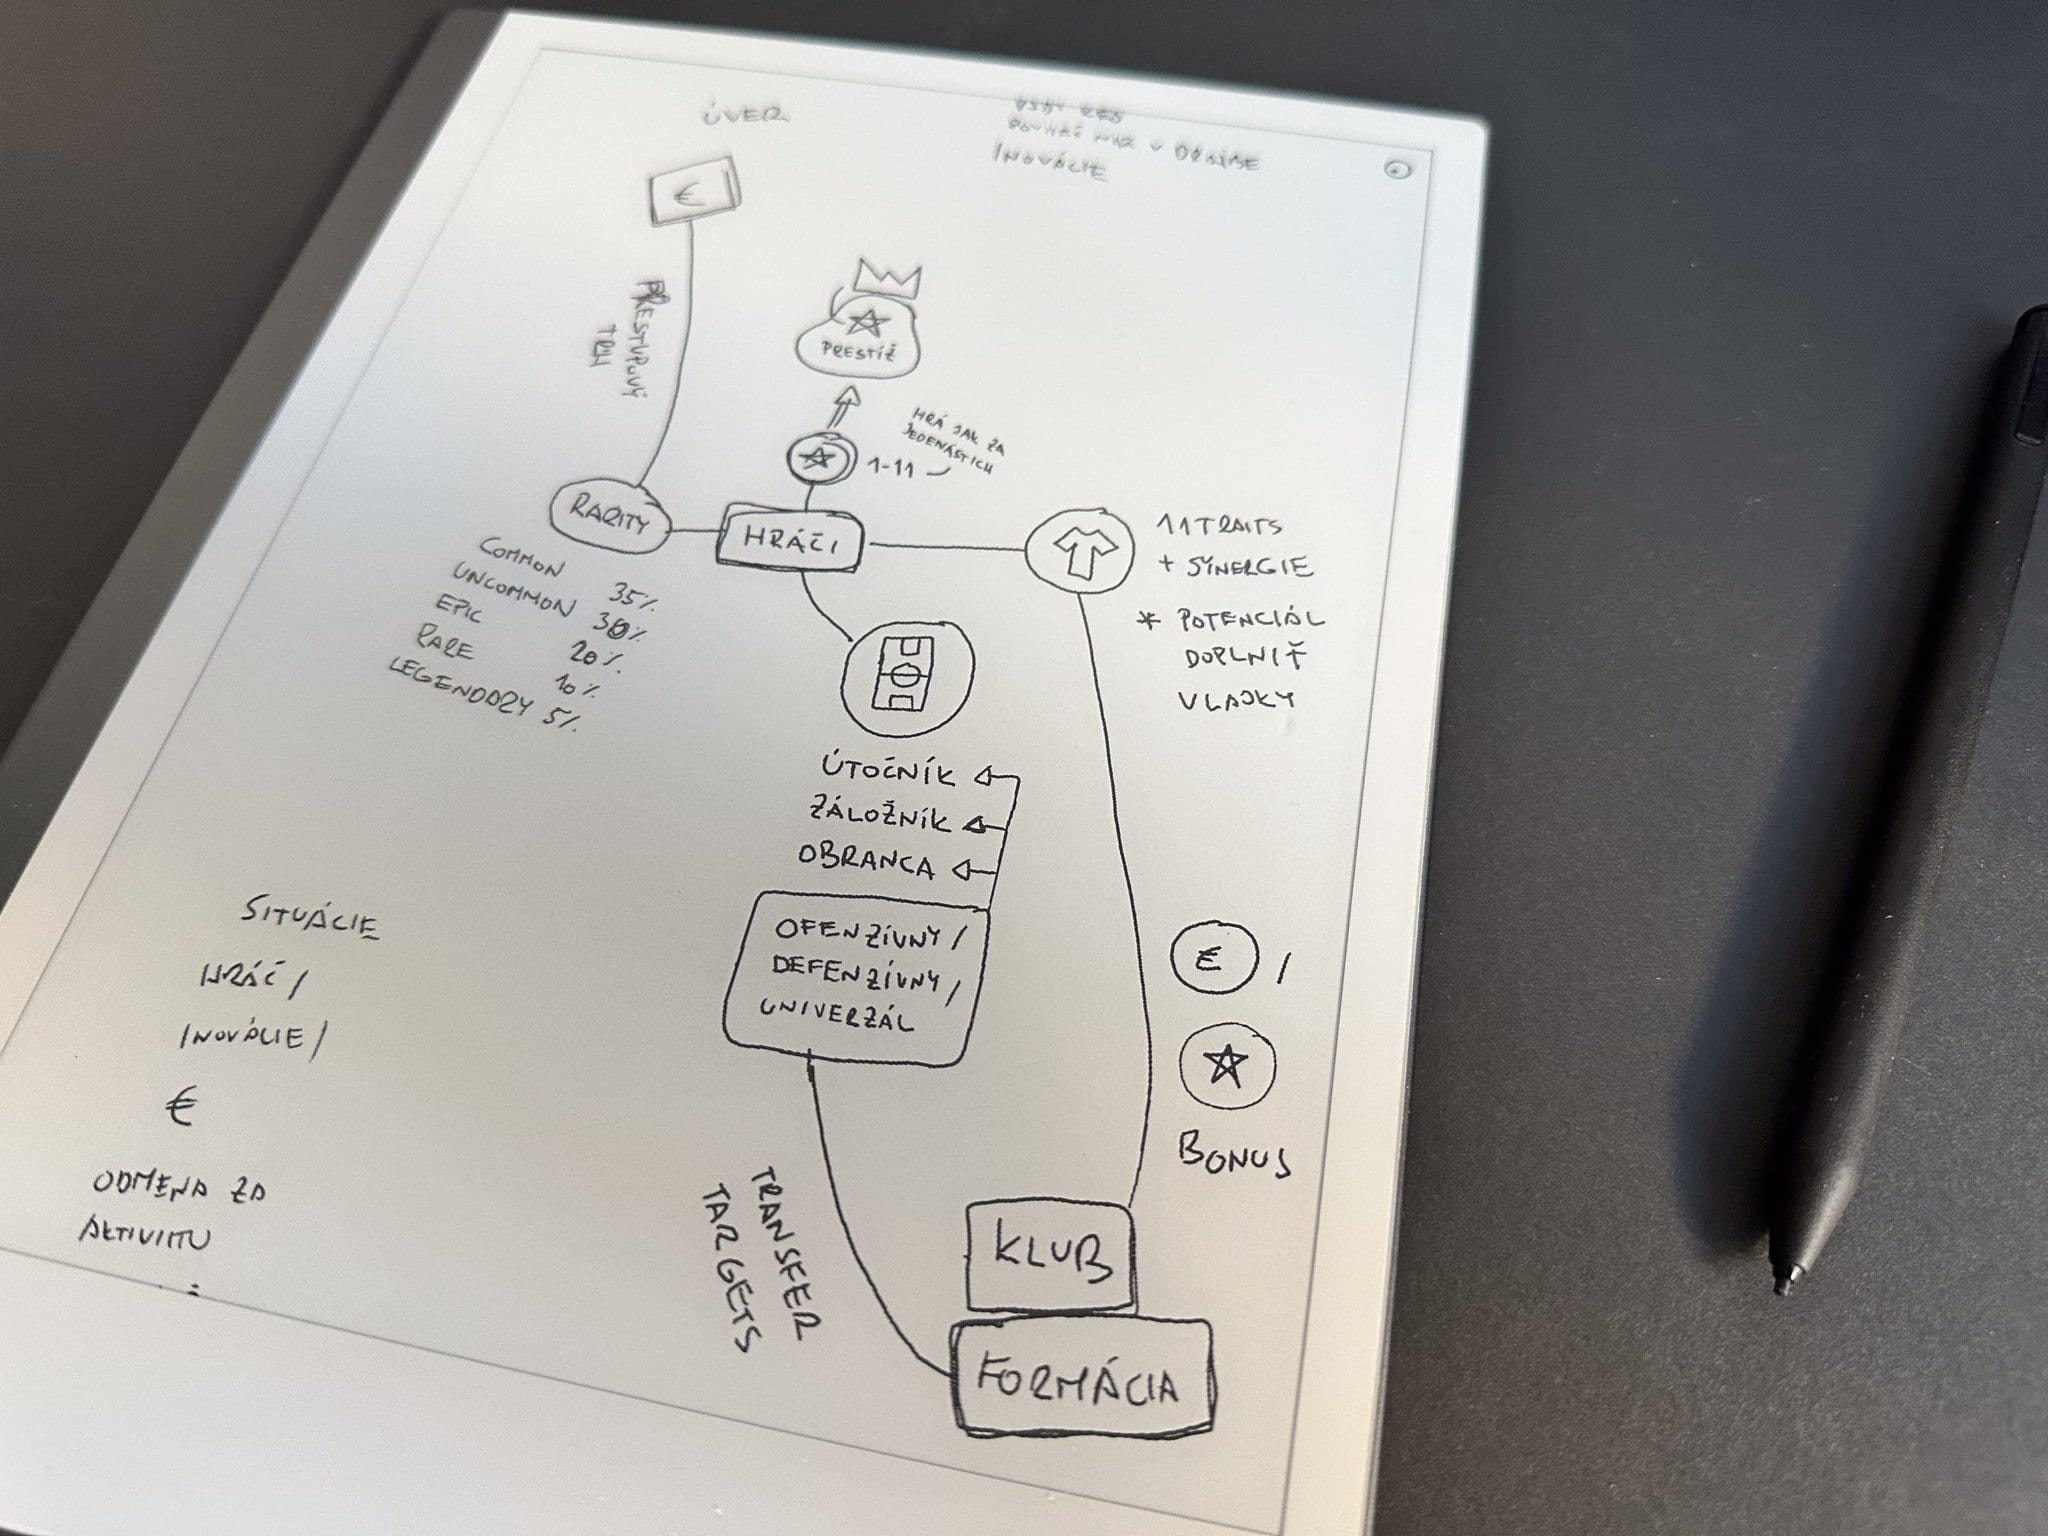 ÚVER
V DRAUBE
INOVÁCIE
€
PRESTUPOVÝ
TRH
PRESTÍŽ
HRÁ JAK ZA
JEDENÁSTICH
1-11
RARITY
HRÁČI
11 TRAITS
+ SYNERGIE
* POTENCIÁL
DOPLNIŤ
VLAJKY
COMMON 35%
UNCOMMON 30%
EPIC 20%
RARE 10%
LEGENDARY 5%
ÚTOČNÍK
ZÁLOŽNÍK
OBRANCA
OFENZÍVNY/
DEFENZÍVNY/
UNIVERZÁL
€ /
BONUS
SITUÁCIE
HRÁČ/
INOVÁCIE/
€
ODMENA ZA
AKTIVITU
TRANSFER
TARGETS
KLUB
FORMÁCIA